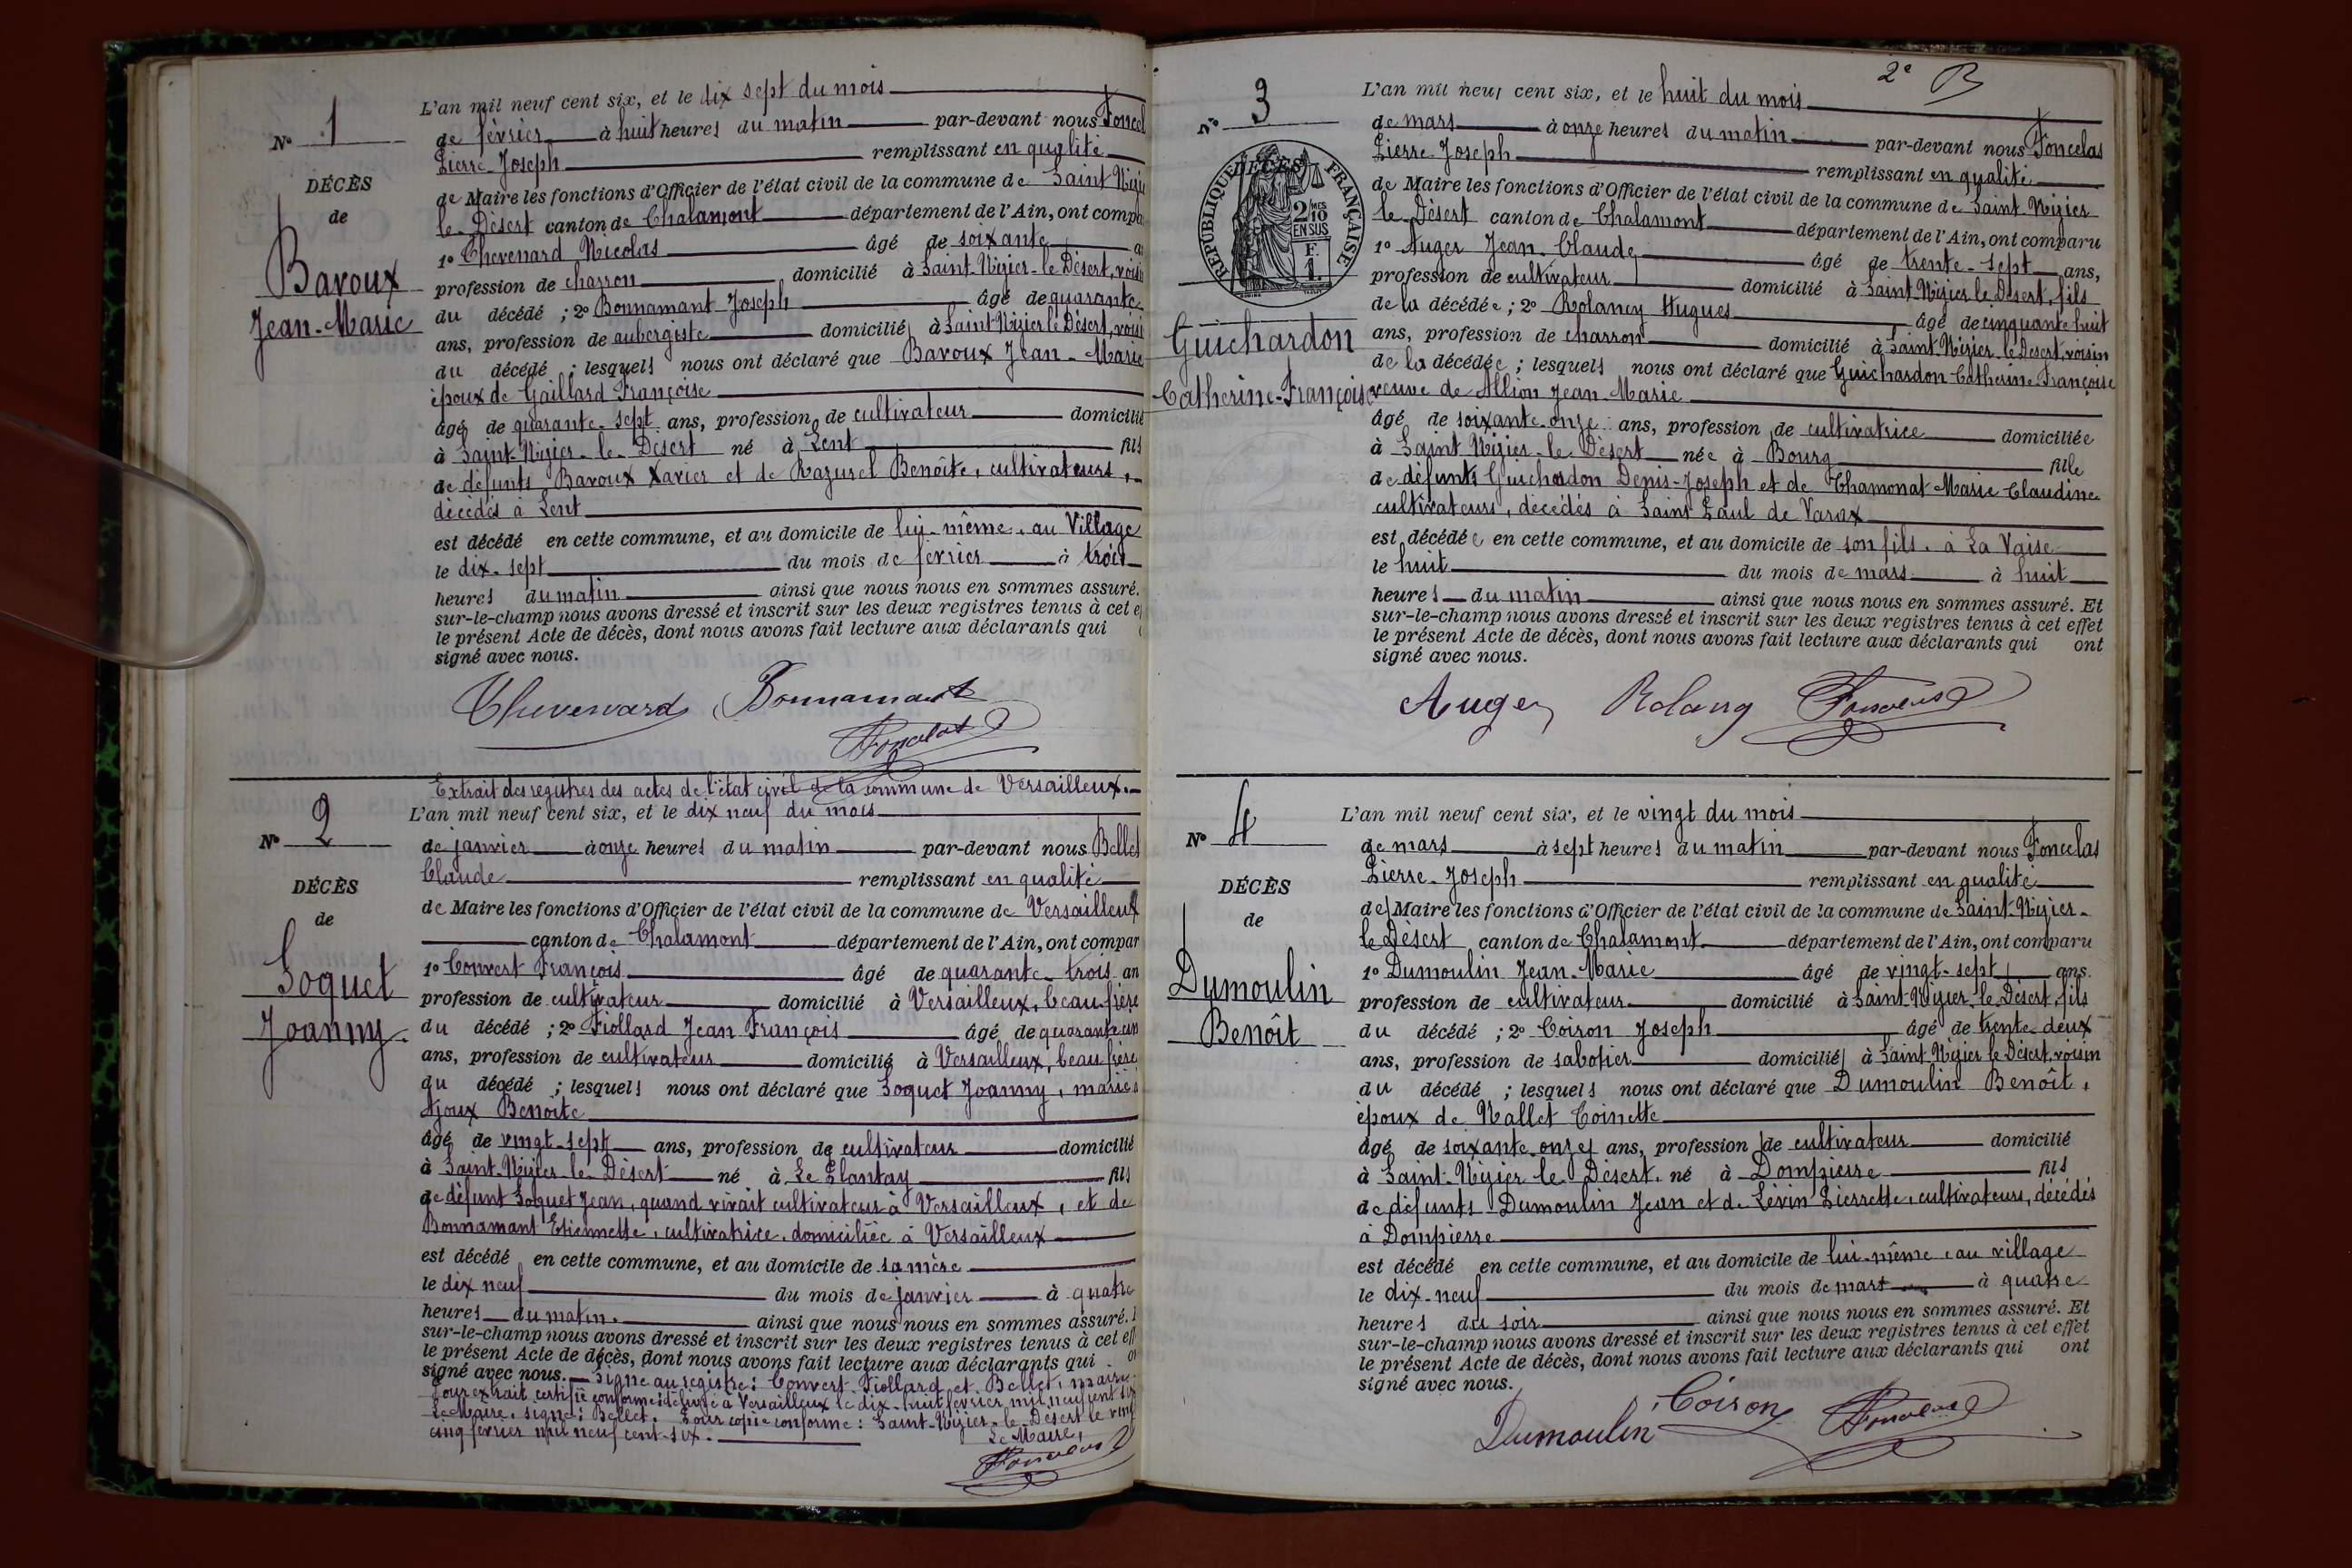 N° 1
DÉCÈS
de
Baroux
Jean-Marie
L'an mil neuf cent six, et le dix sept du mois
de février à huit heures du matin par-devant nous Foncel
Pierre-Joseph remplissant en qualité
de Maire les fonctions d'Officier de l'état civil de la commune de Saint Nizie
le Désert canton de Chalamont département de l'Ain, ont compa
1° Chevenard Nicolas âgé de soixante a
profession de charron domicilié à Saint-Nizier-le Désert, voisin
du décédé ; 2° Bonnamant Joseph âgé de quarante
ans, profession de aubergiste domicilié à Saint Nizier le Désert, voisi
du décédé ; lesquels nous ont déclaré que Baroux Jean-Marie
époux de Gaillard Françoise
âgé de quarante-sept ans, profession de cultivateur domicilié
à Saint-Nizier-le-Désert né à Lent fils
de défunts Baroux Xavier et de Razurel Benoîte, cultivateurs,
décédés à Lent
est décédé en cette commune, et au domicile de lui-même, au Village
le dix-sept du mois de février à trois
heures du matin ainsi que nous nous en sommes assuré.
sur-le-champ nous avons dressé et inscrit sur les deux registres tenus à cet e
le présent Acte de décès, dont nous avons fait lecture aux déclarants qui
signé avec nous.
Chevenard Bonnamant
Foncelas
Extrait des registres des actes de l'état civil de la commune de Versailleux.
N° 2
DÉCÈS
de
Soquet
Joanny
L'an mil neuf cent six, et le dix neuf du mois
de janvier à onze heures du matin par-devant nous Bellet
Claude remplissant en qualité
de Maire les fonctions d'Officier de l'état civil de la commune de Versailleux
canton de Chalamont département de l'Ain, ont compar
1° Convert François âgé de quarante-trois an
profession de cultivateur domicilié à Versailleux, beau-frère
du décédé ; 2° Fiollard Jean François âgé de quarante un
ans, profession de cultivateur domicilié à Versailleux, beau frère
du décédé ; lesquels nous ont déclaré que Soquet Joanny, marié à
Ajoux Benoite
âgé de vingt-sept ans, profession de cultivateur domicilié
à Saint-Nizier-le-Désert né à Le Plantay fils
de défunt Soquet Jean, quand vivait cultivateur à Versailleux, et de
Bonnamant Etiennette, cultivatrice, domiciliée à Versailleux
est décédé en cette commune, et au domicile de sa mère
le dix neuf du mois de janvier à quatre
heures du matin. ainsi que nous nous en sommes assuré.
sur-le-champ nous avons dressé et inscrit sur les deux registres tenus à cet eff
le présent Acte de décès, dont nous avons fait lecture aux déclarants qui o
signé avec nous. Signé au registre: Convert, Fiollard et Bellet, maire
Pour extrait certifié conforme délivré à Versailleux le dix-huit février mil neuf cent six
Le Maire, signé: Bellet. Pour copie conforme: Saint-Nizier-le-Désert le vingt
cinq février mil neuf cent-six.
Le Maire,
Foncelas
2e B
N° 3
DÉCÈS
RÉPUBLIQUE FRANÇAISE
2 MES
10
EN SUS
F.
1.
Guichardon
Catherine-Françoise
L'an mil neuf cent six, et le huit du mois
de mars à onze heures du matin par-devant nous Foncelas
Pierre-Joseph remplissant en qualité
de Maire les fonctions d'Officier de l'état civil de la commune de Saint-Nizier
le Désert canton de Chalamont département de l'Ain, ont comparu
1° Auger Jean-Claude âgé de trente-sept ans,
profession de cultivateur domicilié à Saint-Nizier le Désert, fils
de la décédée ; 2° Rolancy Hugues âgé de cinquante huit
ans, profession de charron domicilié à Saint Nizier-le Désert, voisin
de la décédée ; lesquels nous ont déclaré que Guichardon-Catherine-Françoise
veuve de Allion Jean-Marie
âgé de soixante-onze ans, profession de cultivatrice domiciliée
à Saint Nizier-le-Désert née à Bourg fille
de défunts Guichardon Denis-Joseph et de Chamonat Marie Claudine
cultivateurs, décédés à Saint Paul de Varax
est décédée en cette commune, et au domicile de son fils, à La Vaise
le huit du mois de mars à huit
heures du matin ainsi que nous nous en sommes assuré. Et
sur-le-champ nous avons dressé et inscrit sur les deux registres tenus à cet effet
le présent Acte de décès, dont nous avons fait lecture aux déclarants qui ont
signé avec nous.
Auger Rolancy Foncelas
N° 4
DÉCÈS
de
Dumoulin
Benoît
L'an mil neuf cent six, et le vingt du mois
de mars à sept heures du matin par-devant nous Foncelas
Pierre-Joseph remplissant en qualité
de Maire les fonctions d'Officier de l'état civil de la commune de Saint-Nizier-
le Désert canton de Chalamont département de l'Ain, ont comparu
1° Dumoulin Jean-Marie âgé de vingt-sept ans.
profession de cultivateur domicilié à Saint-Nizier-le Désert, fils
du décédé ; 2° Coiron Joseph âgé de trente deux
ans, profession de sabotier domicilié à Saint Nizier le Désert, voisin
du décédé ; lesquels nous ont déclaré que Dumoulin Benoît,
époux de Nallet Toinette
âgé de soixante-onze ans, profession de cultivateur domicilié
à Saint-Nizier le Désert, né à Dompierre fils
de défunts Dumoulin Jean et de Lévin Pierrette, cultivateurs, décédés
à Dompierre
est décédé en cette commune, et au domicile de lui-même, au village
le dix-neuf du mois de mars à quatre
heures du soir ainsi que nous nous en sommes assuré. Et
sur-le-champ nous avons dressé et inscrit sur les deux registres tenus à cet effet
le présent Acte de décès, dont nous avons fait lecture aux déclarants qui ont
signé avec nous.
Dumoulin Coiron Foncelas